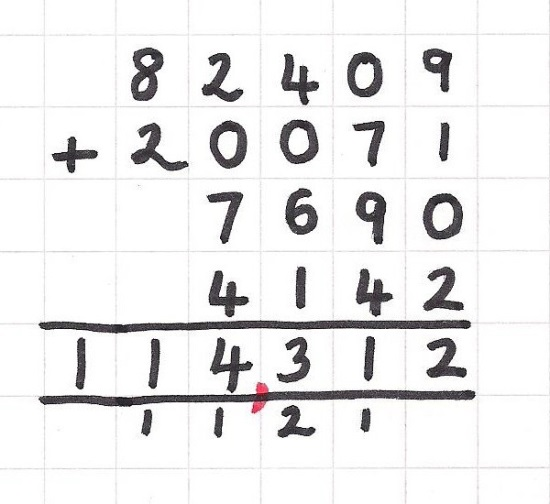 82409
+ 20071
7690
4142
114,312
1121